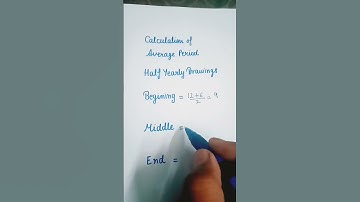 Calculation of
Average Period
Half Yearly Drawings
Begining = 12+6/2 = 9
Middle =
End =